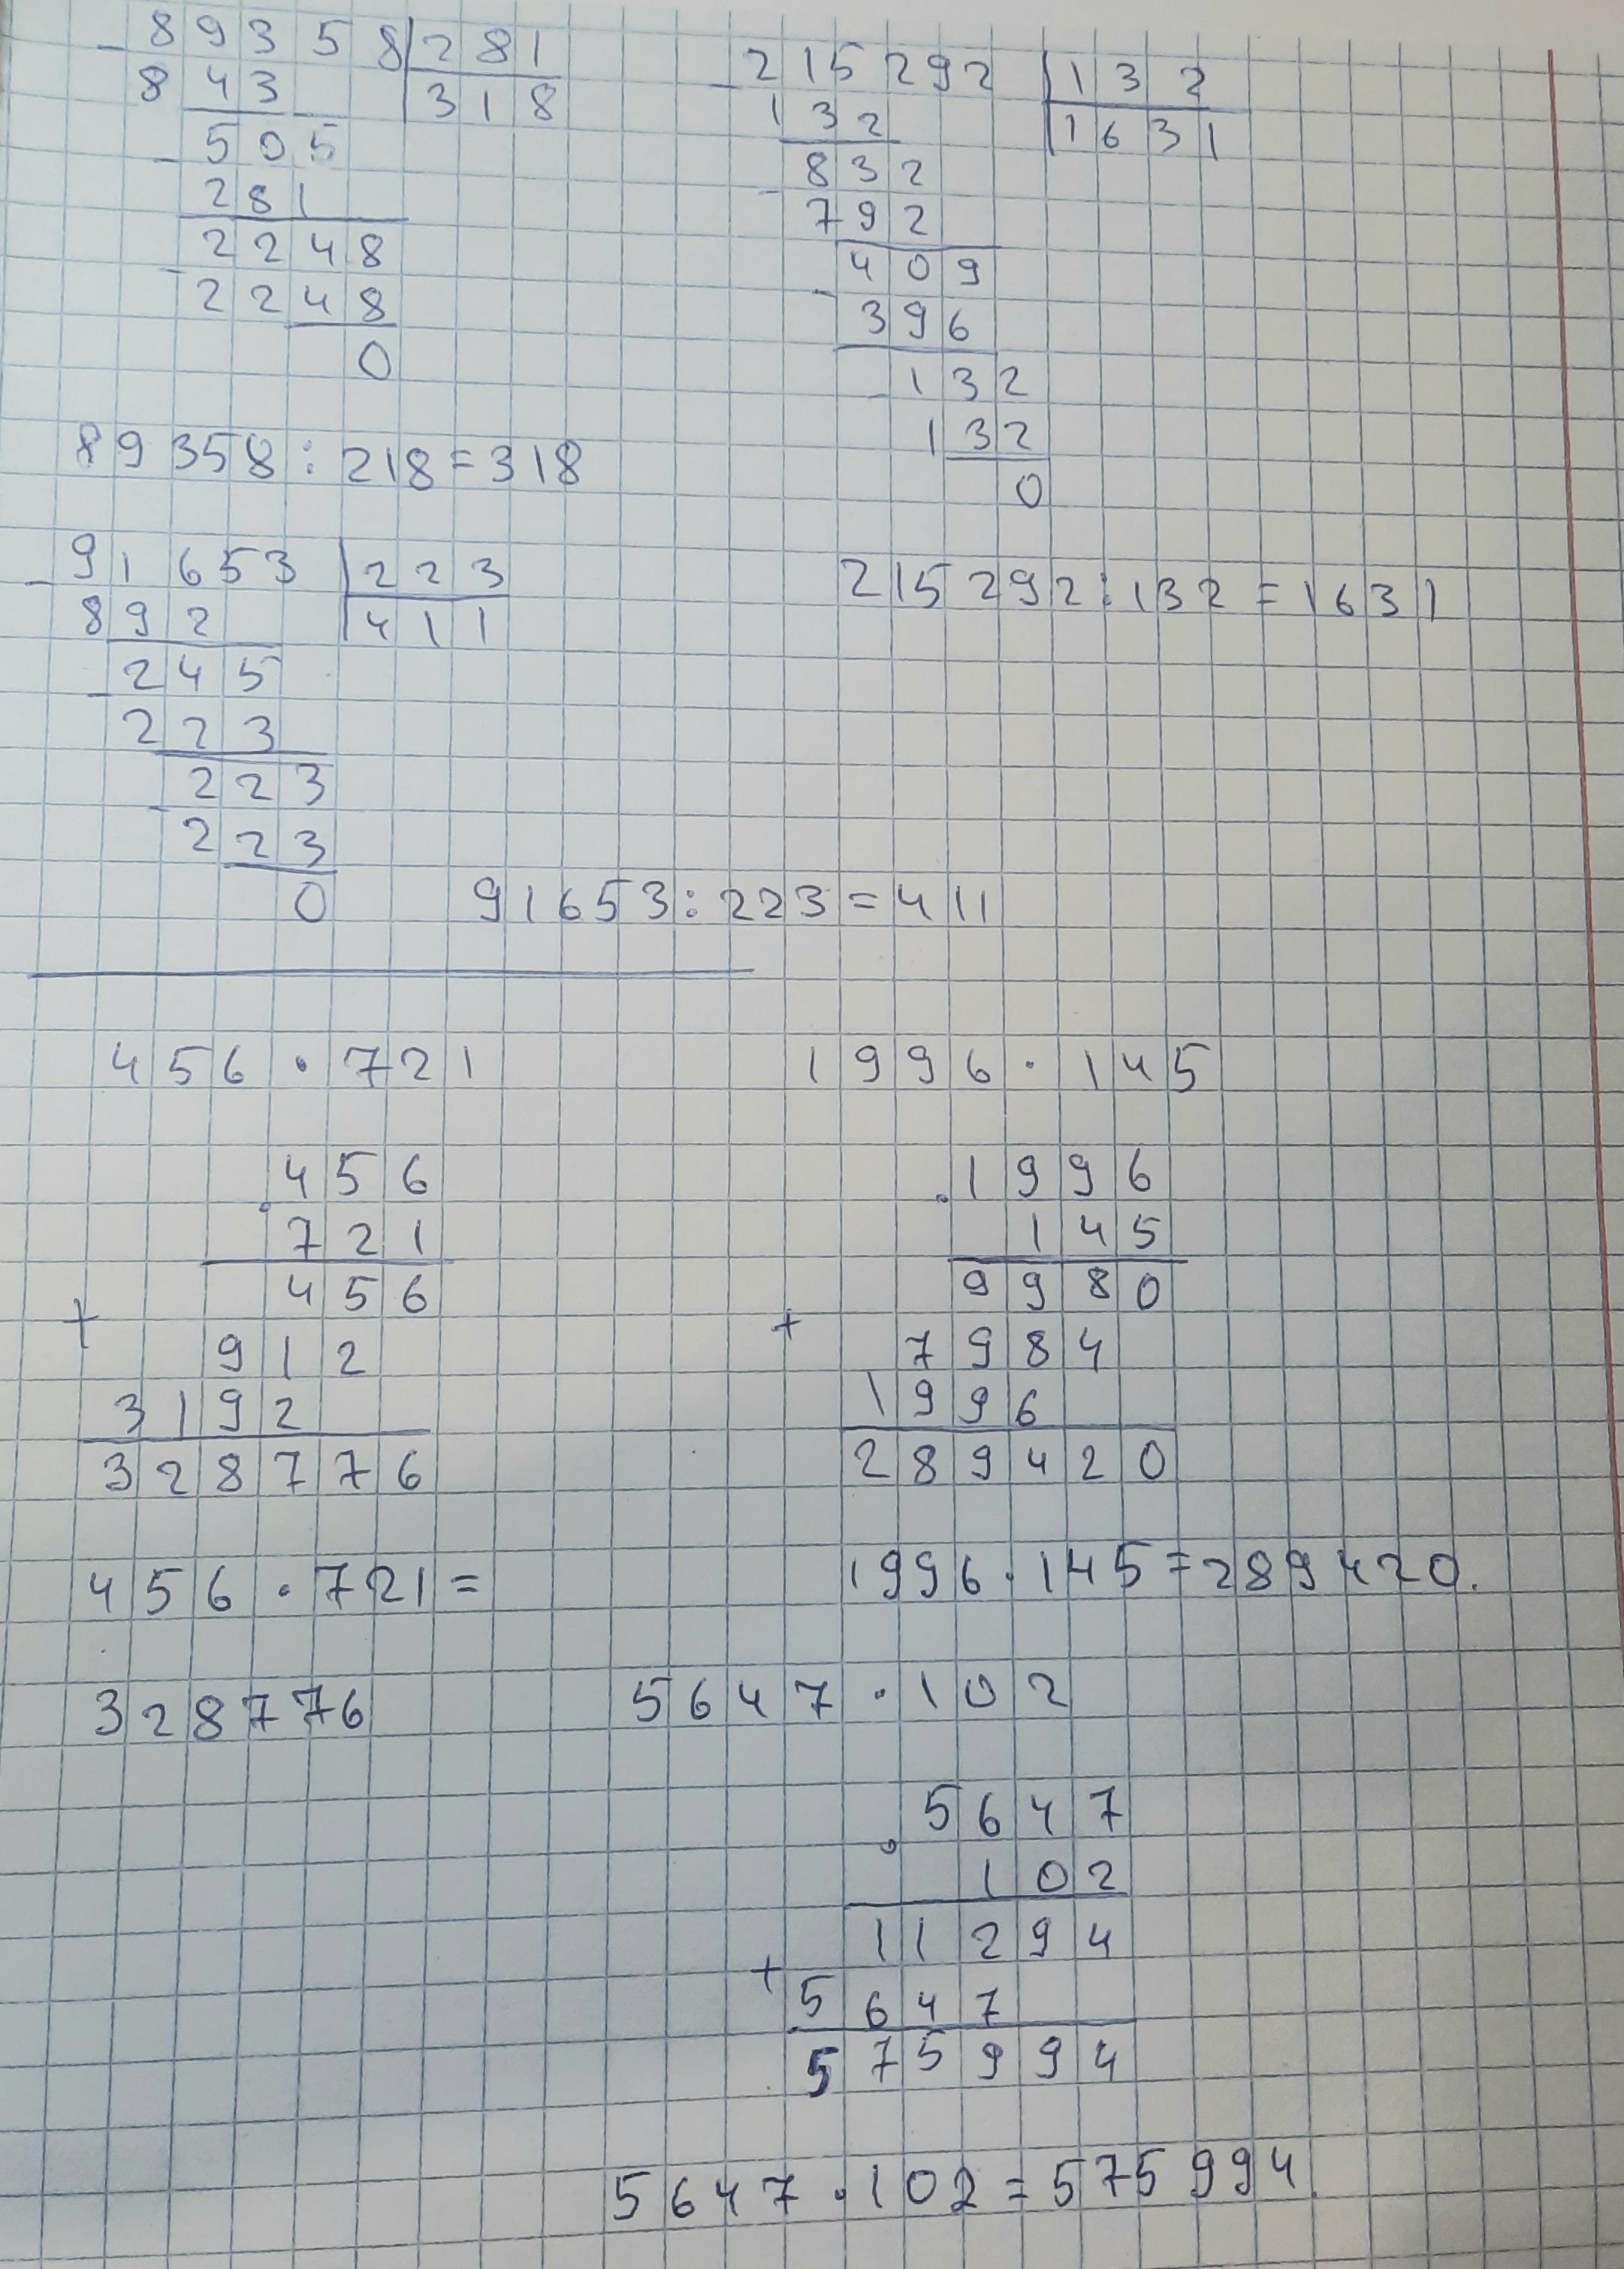 89358 | 281
843 | 318
505
281
2248
2248
0
89358 : 218 = 318
215292 | 132
132 | 1631
832
792
409
396
132
132
0
215292 : 132 = 1631
91653 | 223
892 | 411
245
223
223
223
0
91653 : 223 = 411
456 · 721
· 456
721
456
+
912
3192
328776
456 · 721 =
328776
1996 · 145
· 1996
145
9980
+
7984
1996
289420
1996 · 145 = 289420.
5647 · 102
· 5647
102
11294
+
5647
575994
5647 · 102 = 575994.